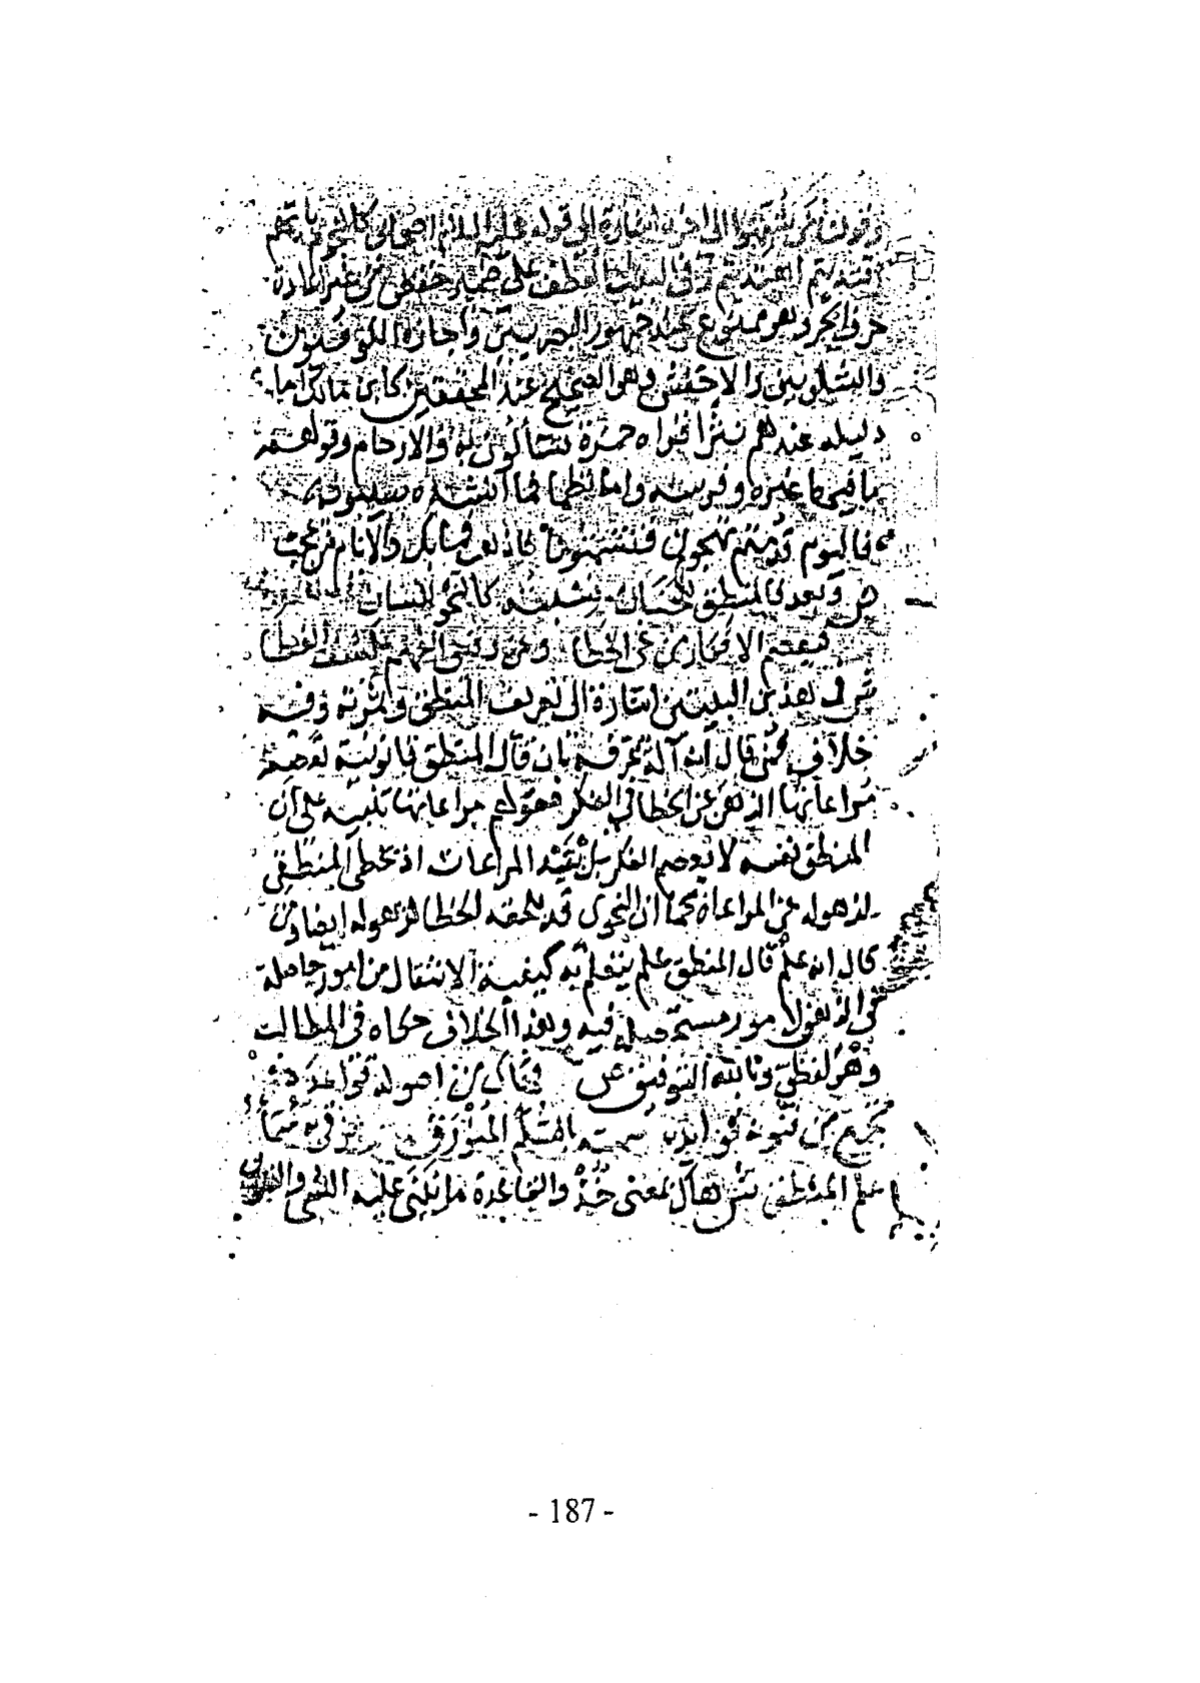 إلى قوله عليه السلام أصحابي كالنجوم بأيهم
اقتديتم اهتديتم وفي البيت العطف على ضمير خفض من غير إعادة
حرف الجر وهو ممنوع عند جمهور البصريين وأجازه الكوفيون
والشلوبين والاخفش وهو الصحيح عند المحققين كابن مالك اما
دليله عندهم نثرا قراه حمزة تتساءلون به والارحام وقولهم
ما فيها غيره وفرسه واما نظما فما انشده سيبويه
فاليوم قدمتم تهجونا وتشتمونا فاذهب فما بك والأيام من عجب
ص وبعد فالمنطق للجنان نسبته كالنحو للسان
فيعصم الافكار عن الخطا وعن دقيق الفهم يكشف الغطا
ش في هذين البيتين اشارة الى تعريف المنطق وثمرته وفيه
خلاف فمن قال انه آلة عرفه بان قال المنطق آلة قانونية تعصم
مراعاتها الذهن عن الخطا في الفكر فقولهم مراعاتها تنبيه على ان
المنطق نفسه لا يعصم الفكر بل بقيد المراعات اذ يخطئ المنطقي
لذهوله عن المراعاة كما ان النحوى قد يلحقه الخطا لذهوله ايضا ومن
قال انه علم قال المنطق علم يتعلم به كيفية الانتقال من امور حاصلة
في الذهن لامور مستحصلة فيه وهذا الخلاف حكاه في المطالب
وهو لفظي وبالله التوفيق ص فهاك من اصوله قواعد
تجمع من فنونه فوايد سميته بالسلم المنورق يرقى به سما
علم المنطق ش هاك بمعنى خذ والقاعدة ما يبنى عليه الشي
- 187 -